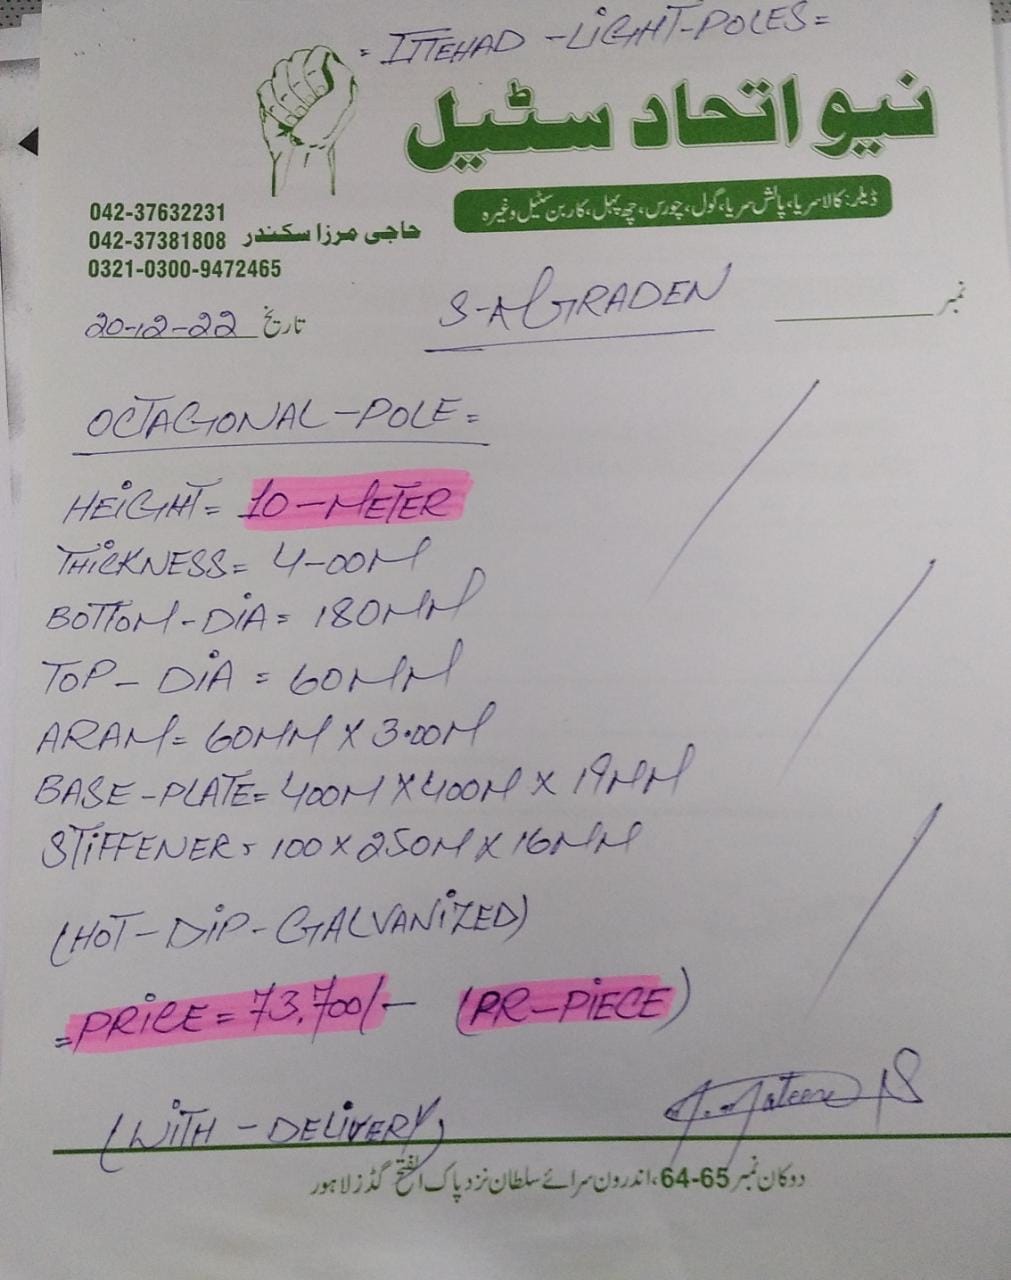 = ITTEHAD -LIGHT-POLES=
نیو اتحاد سٹیل
ڈیلر: کالا سریا، پالش سریا، گول، چورس، چھ پہل، کاربن سٹیل وغیرہ
042-37632231
042-37381808 حاجی مرزا سکندر
0321-0300-9472465
20-12-22 تاریخ
S-A GRADEN
نمبر
OCTAGONAL-POLE=
HEIGHT= 10-METER
THICKNESS= 4-00M
BOTTOM-DIA= 180MM
TOP- DIA = 60MM
ARAM= 60MM X 3.00M
BASE-PLATE= 400M X 400M X 19MM
STIFFENER= 100 X 250M X 16MM
(HOT-DIP-GALVANIZED)
=PRICE= 73,700/- (PR-PIECE)
(WITH-DELIVERY)
دوکان نمبر 65-64، اندرون سرائے سلطان نزد پاک الفتح گڈز لاہور